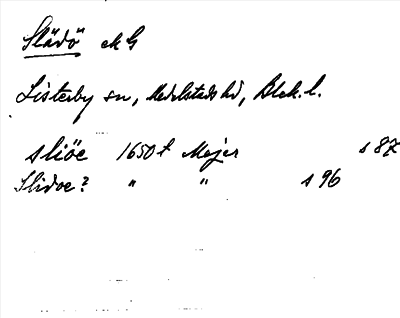 Slädö ekG
Listerby sn, Medelstads hd, Blek. l.
sliöe 1650t Mejer s 87
Slidoe? " " s 96